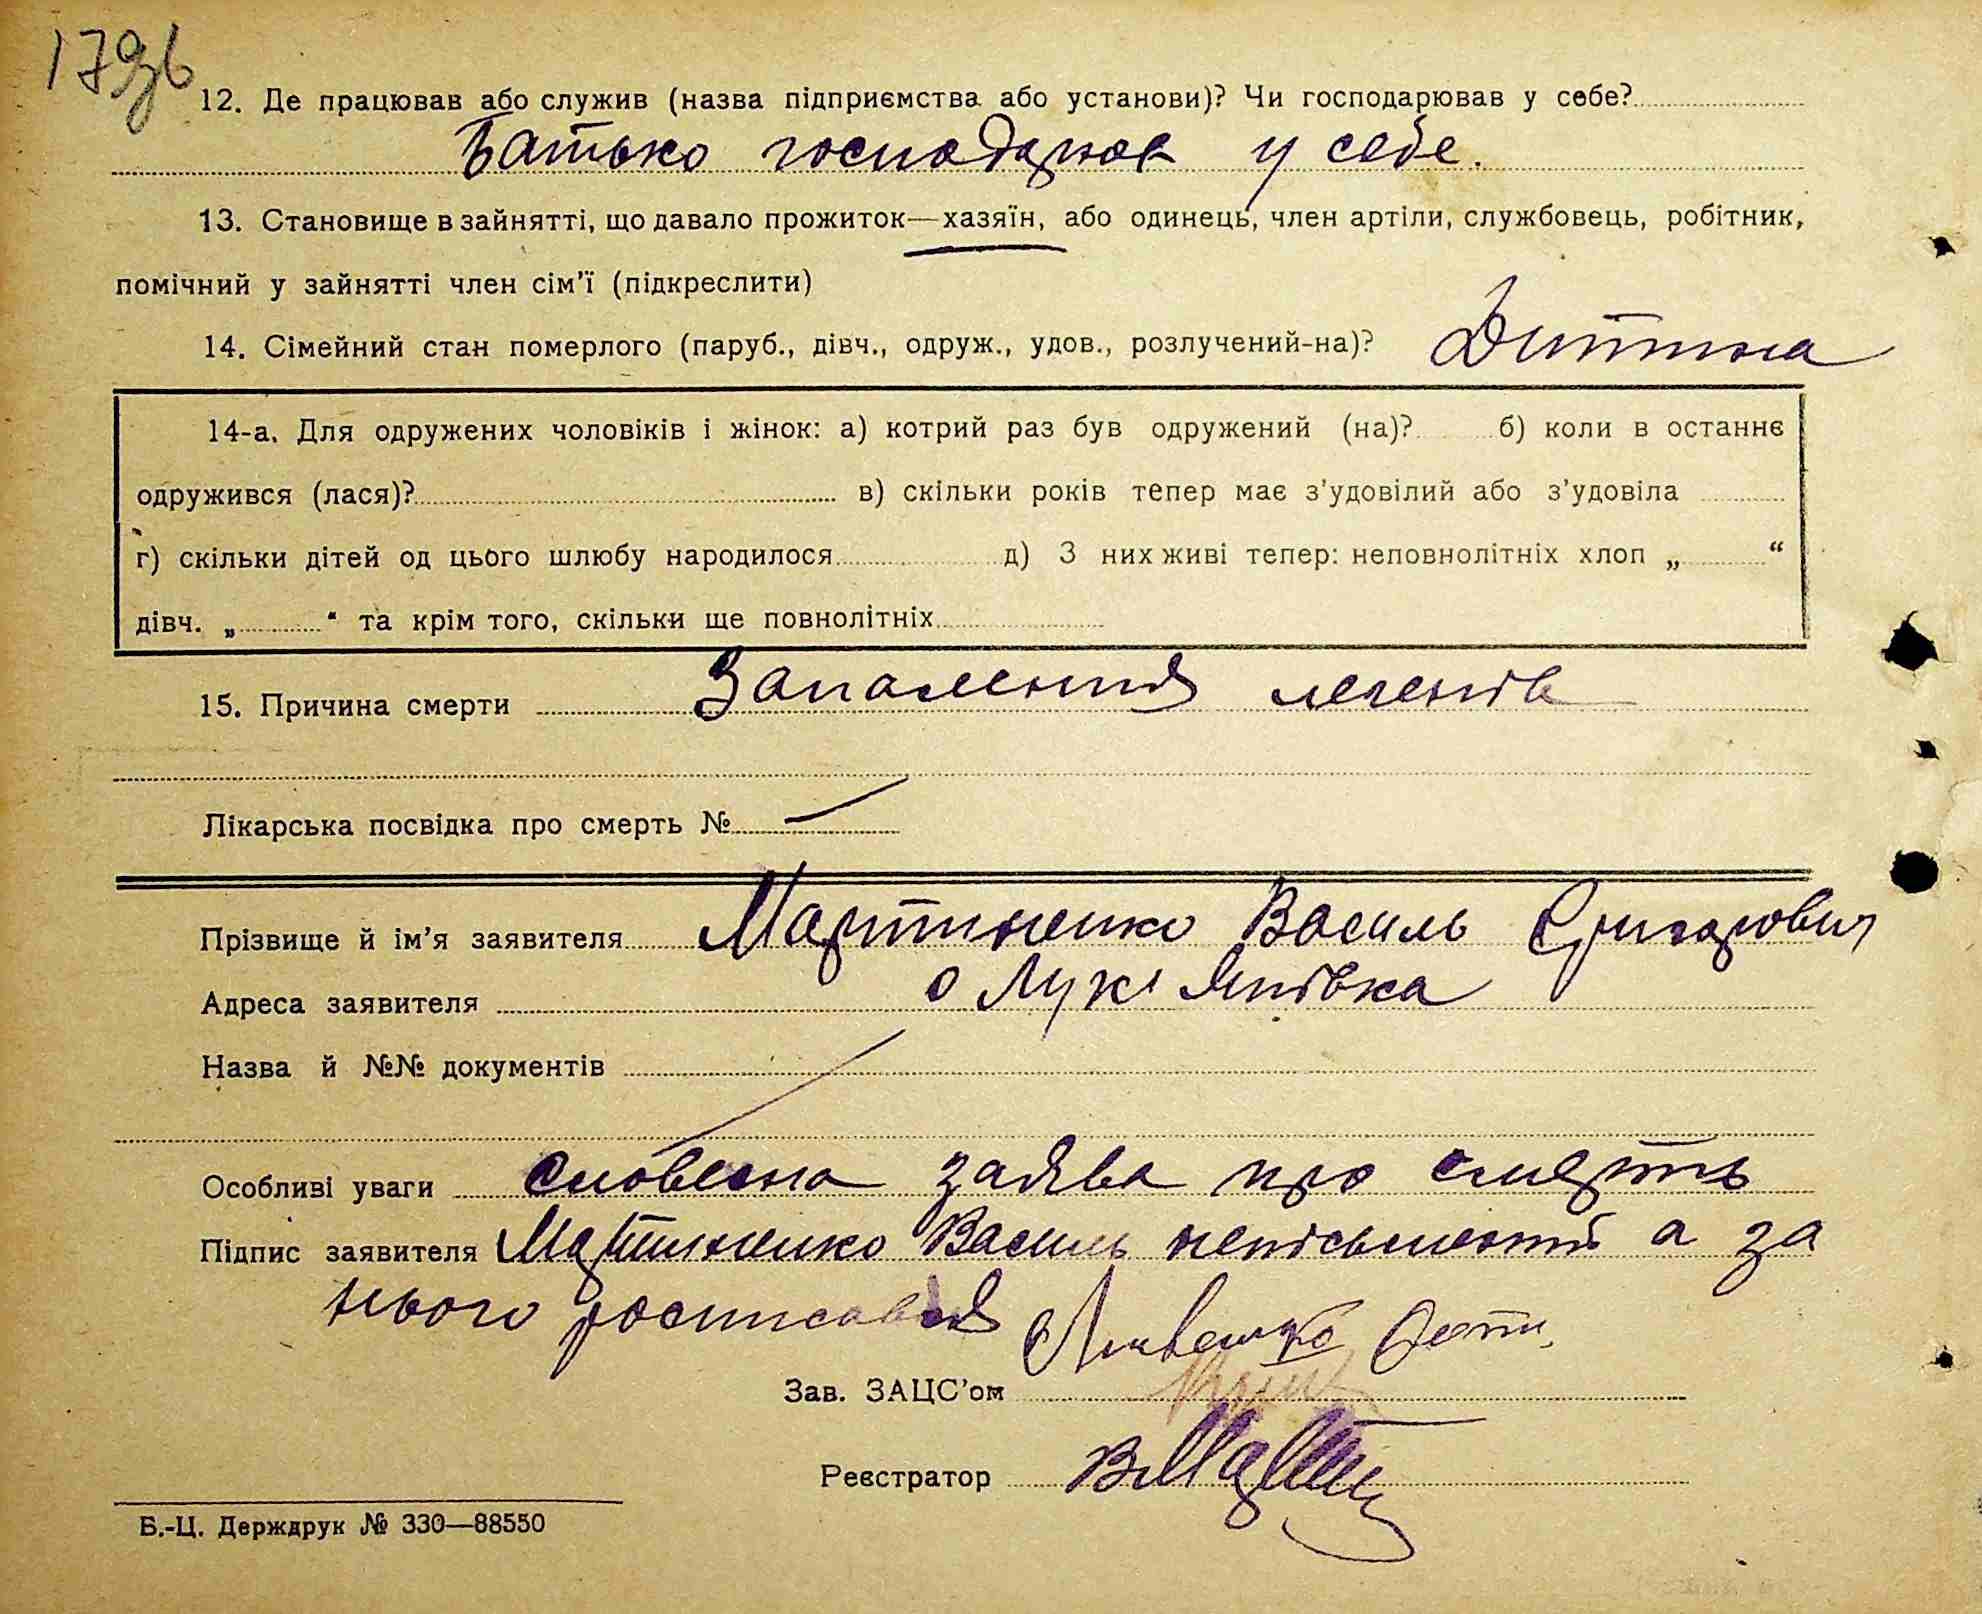 179зв
12. Де працював або служив (назва підприємства або установи)? Чи господарював у себе?
Батько господарює у себе.
13. Становище в зайнятті, що давало прожиток—хазяїн, або одинець, член артіли, службовець, робітник,
помічний у зайнятті член сім'ї (підкреслити)
14. Сімейний стан померлого (паруб., дівч., одруж., удов., розлучений-на)? Дитина
14-а. Для одружених чоловіків і жінок: а) котрий раз був одружений (на)? б) коли в останнє
одружився (лася)? в) скільки років тепер має з'удовілий або з'удовіла
г) скільки дітей од цього шлюбу народилося д) З них живі тепер: неповнолітніх хлоп „ “
дівч. „ “ та крім того, скільки ще повнолітніх
15. Причина смерти Запалення легенів
Лікарська посвідка про смерть № —
Прізвище й ім'я заявителя Мартиненко Василь Григорович
Адреса заявителя с Лук'янівка
Назва й №№ документів
Особливі уваги словесна заява про смерть
Підпис заявителя Мартиненко Василь неписьменний а за
нього росписався
Зав. ЗАЦС'ом
Реєстратор
Б.-Ц. Держдрук № 330—88550